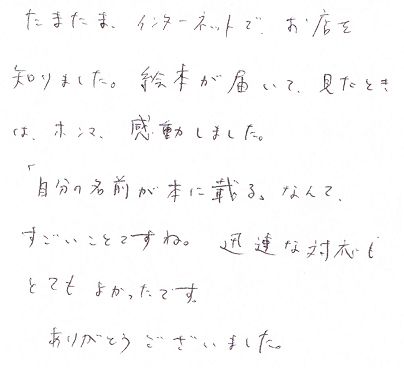 たまたま、インターネットで、お店を
知りました。絵本が届いて、見たとき
は、ホンマ、感動しました。
「自分の名前が本に載る」なんて、
すごいことですね。迅速な対応も
とても よかったです。
ありがとう ございました。